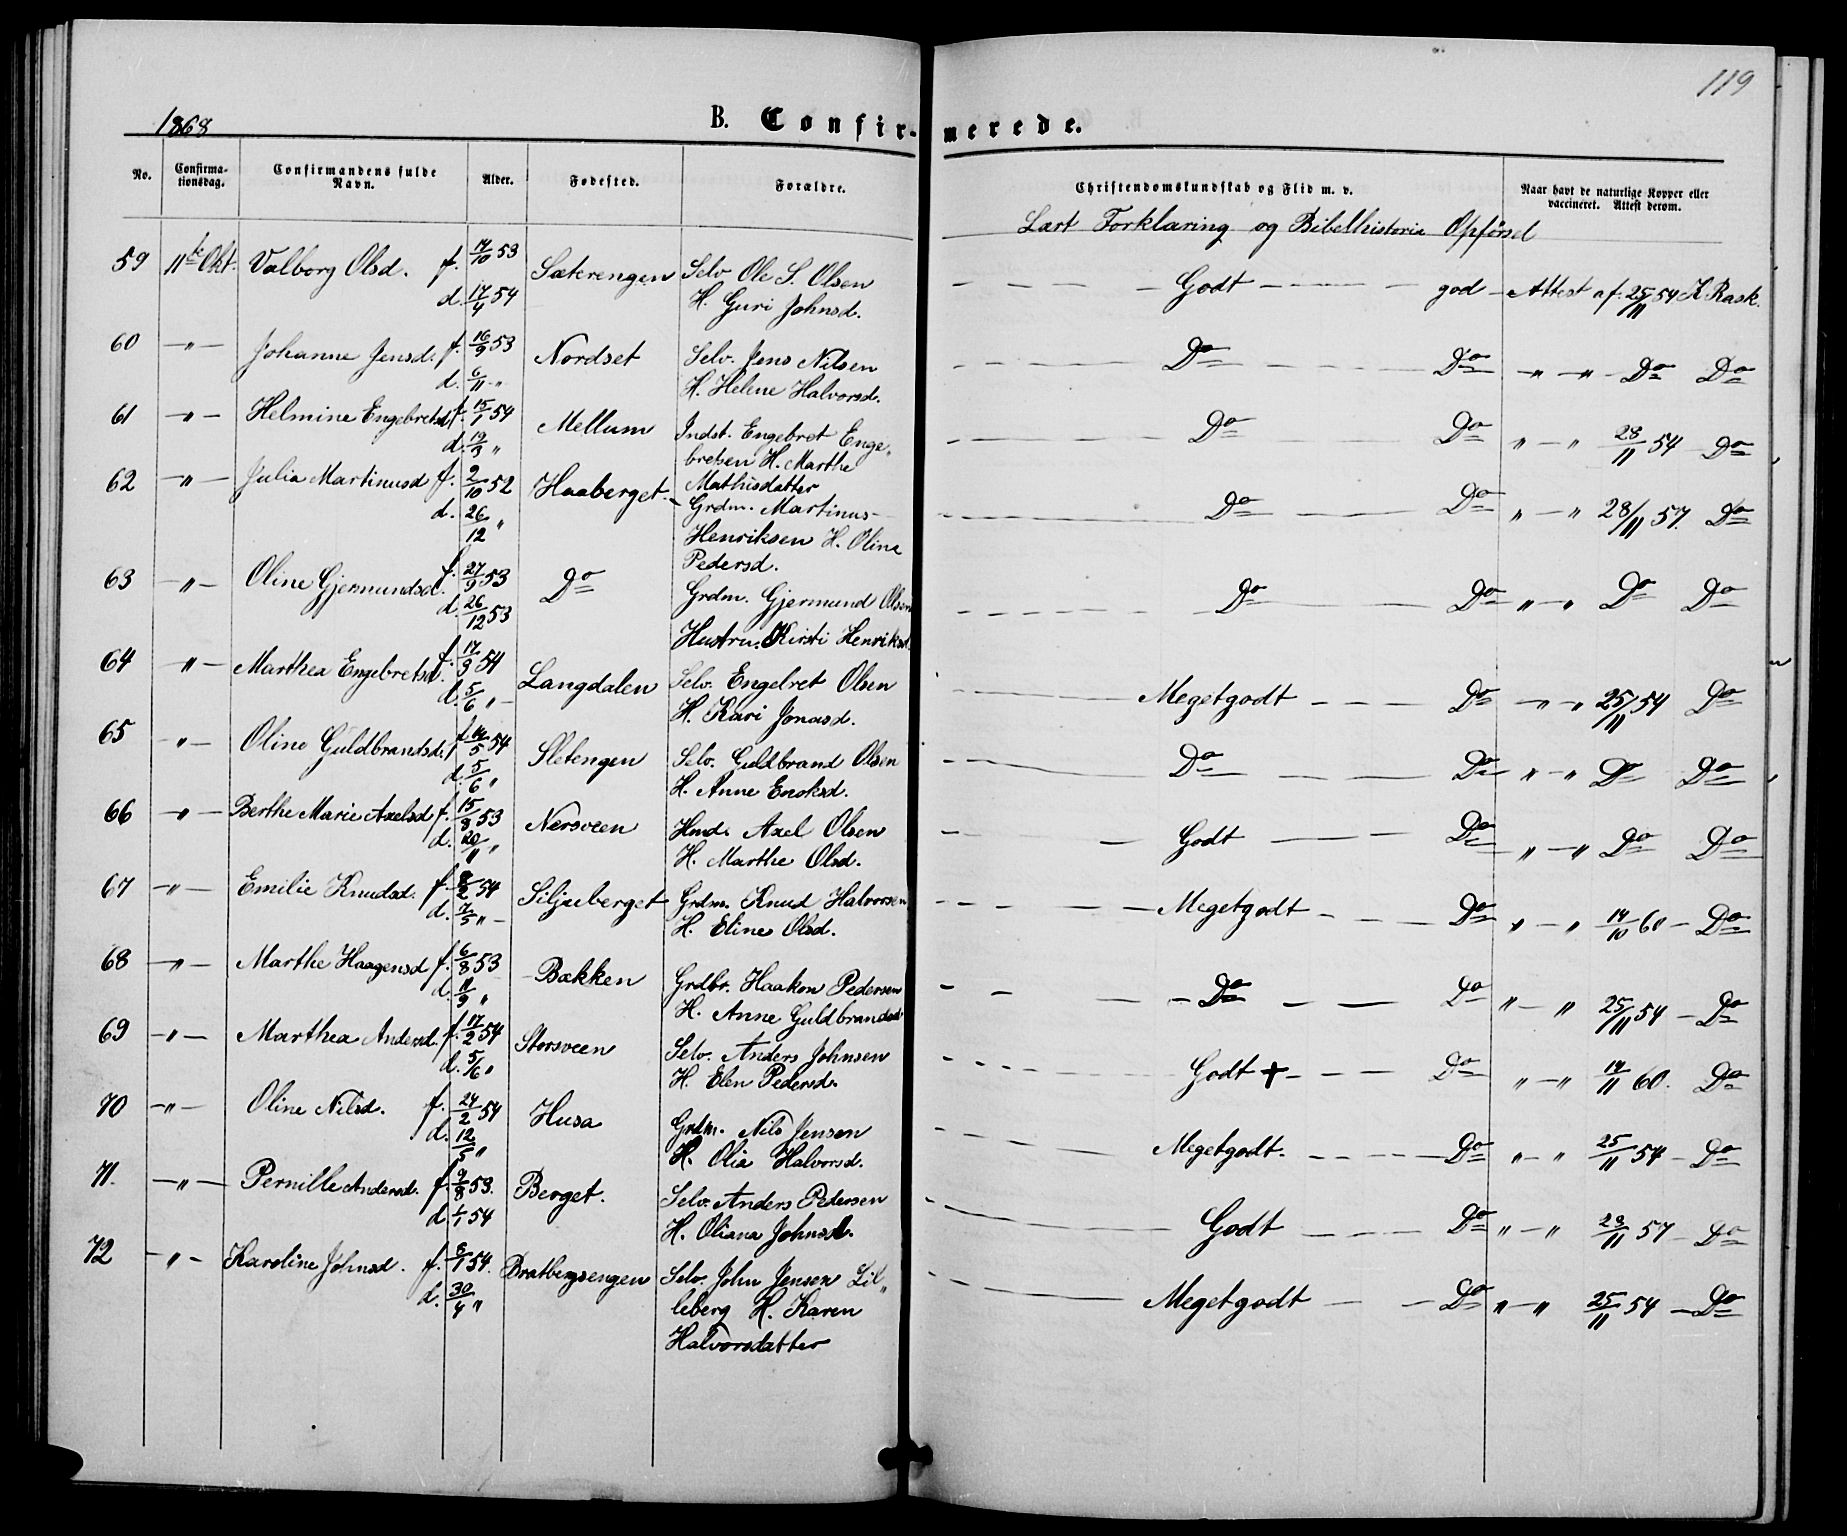 119
1868
B. Confirmerede.
No. Confirmationsdag. Confirmandens fulde Navn. Alder. Fødested. Forældre. Christendomskundskab og Flid m. v. Naar havt de naturlige Kopper eller vaccineret. Attest derom.
Læst Forklaring og Bibelhistorie Opførsel
59 11te Okt. Valborg Olsd. f. 17/10 53 Sæterengen Selv Ole S. Olsen — Godt — god — Attest af 25/11 54 K Rask.
d. 17/4 54 H. Guri Johnsd.
60 —"— Johanne Jensd. f. 16/9 53 Nordset Selv. Jens Nilsen — Do — Do —"—"— Do Do
d. 6/11 —"— H. Helene Halvorsd.
61 —"— Helmine Engebretsd f. 15/1 54 Mellum Indst. Engebret Enge„ — Do — Do " — " 28/11 54 — Do
d. 19/3 " bretsen H. Marthe
Mathisdatter
62 —"— Julia Martinusd f. 2/10 52 Haaberget Grdm. Martinus — Do — Do " — " 28/11 57. Do
d. 26/12 " Henriksen H. Oline
Pedersd.
63 —"— Oline Gjermundsd. f. 27/9 53 Do Grdm. Gjermund Olsen — Do — Do " — " Do Do
d. 26/12 53 Hustru Kirsti Henriksd.
64 —"— Marthea Engebretsd. f. 17/3 54 Langdalen Selv. Engebret Olsen — Megetgodt — Do —"—" 25/11 54 Do
d. 5/6 " — H. Kari Jonasd.
65 —"— Oline Guldbrandsd. f. 14/5 54 Sletengen Selv. Guldbrand Olsen — Do — Do " — " Do Do
d. 5/6 " H. Anne
66 —"— Berthe Marie Axelsd f. 15/8 53 Nersveen Hmd. Axel Olsen — Godt — Do " — " Do Do
d. 20/11 " H. Marthe Olsd.
67 —"— Emilie Knudsd. f. 8/2 54 Siljuberget Grdm. Knud Halvorsen — Megetgodt — Do " — " 14/10 60 — Do
d. 7/5 " — H. Eline Olsd.
68 —"— Marthe Haagensd f. 6/8 53 Bækken Grdbr. Haakon Pedersen — Do — Do " — " 25/11 54 — Do
d. 11/9 " H. Anne Guldbrandsd.
69 —"— Marthea Andersd. f. 17/2 54 Storsveen Selv. Anders Johnsen — Godt + — Do " — " 14/11 60. Do
d. 5/6 " H. Elen Pedersd.
70 —"— Oline Nilsd. f. 24/2 54 Husa Grdm. Nils Jensen — Megetgodt. — Do " — " 25/11 54 — Do
d. 12/5 " H. Olia Halvorsd.
71. —"— Pernille Andersd. f. 9/8 53. Berget. Selv. Anders Pedersen — Godt — Do " — " 28/11 57 — Do
d. 1/1 54 H. Oliana Johnsd.
72 —"— Karoline Johnsd. f. 8/1 54. Bratbergsengen Selv. John Jensen Lil„ — Megetgodt — Do " — " 25/11 54 — Do
d. 30/4 " leberg H. Karen
Halvorsdatter